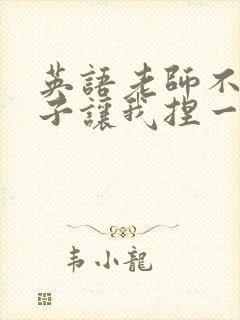 英語老師不
子讓我捏一
韦小龍